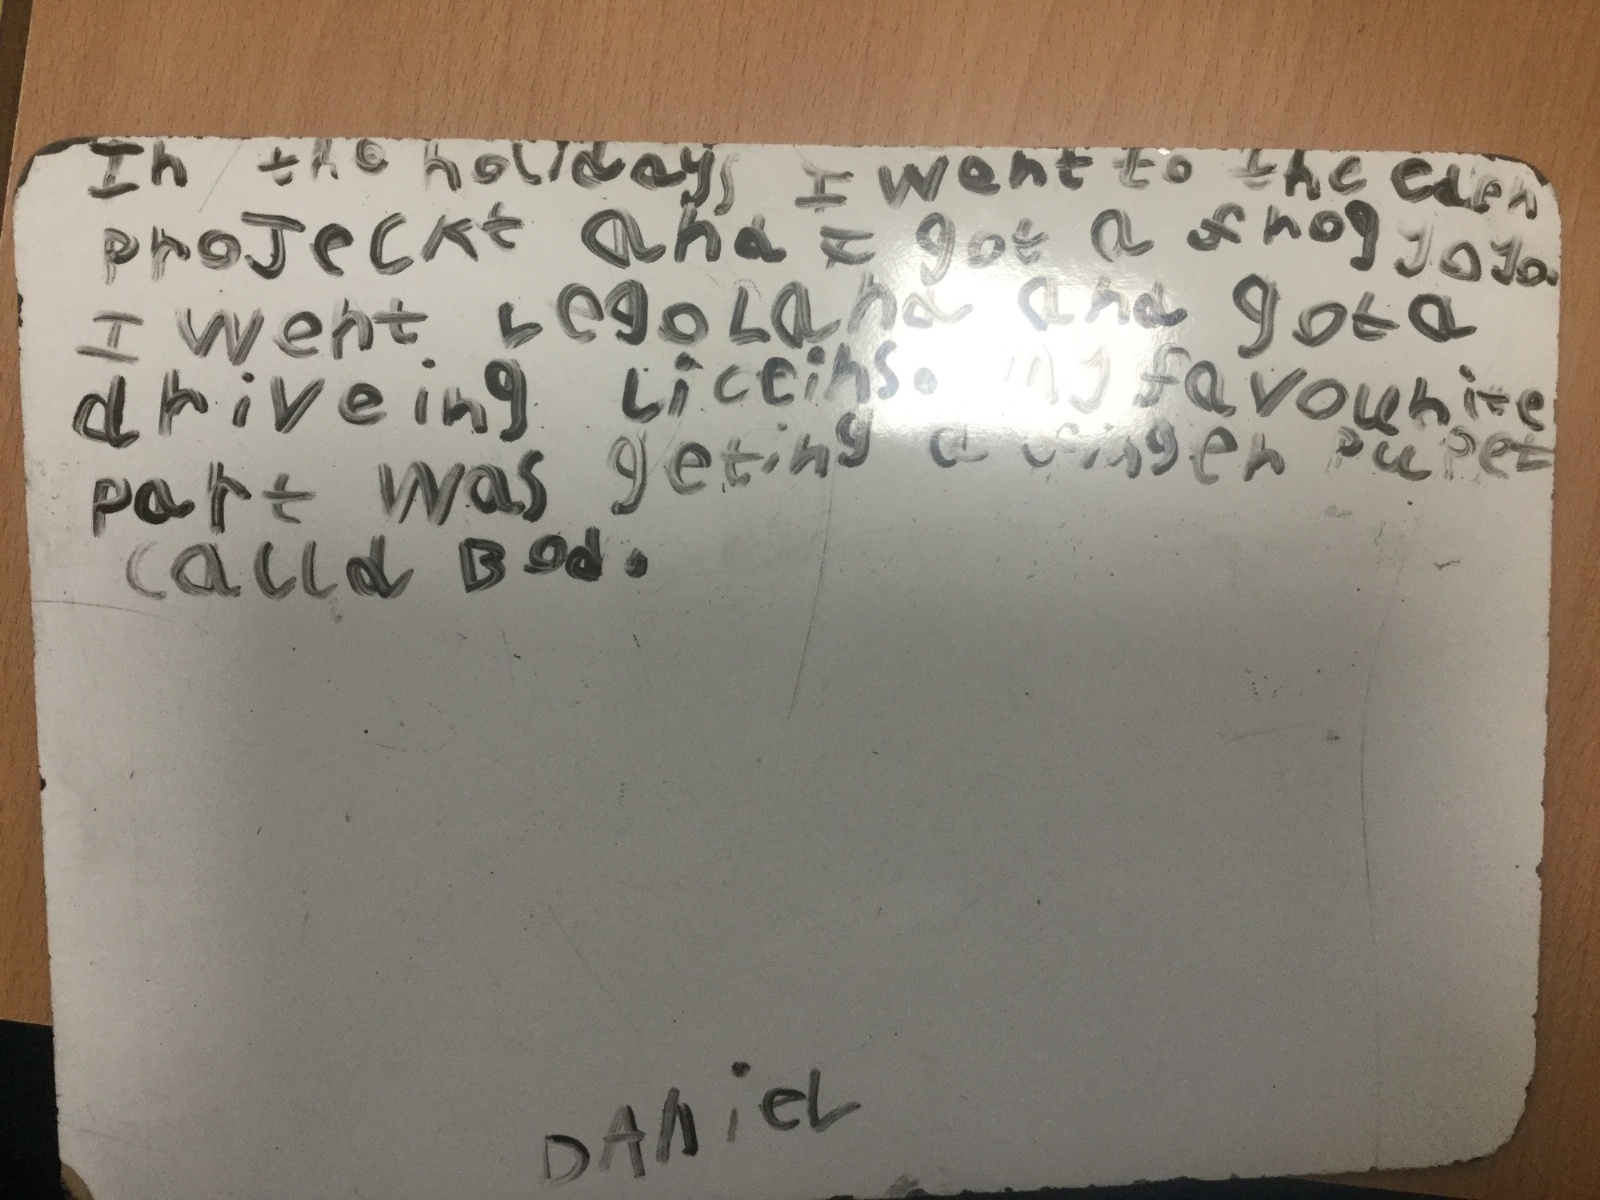 In the holidays I went to the eden
projeckt and I got a frog yoyo.
I went LegoLand and got a
driveing Liceins. My favourite
part was geting a finger pupet
calld Bod.
DANiEL